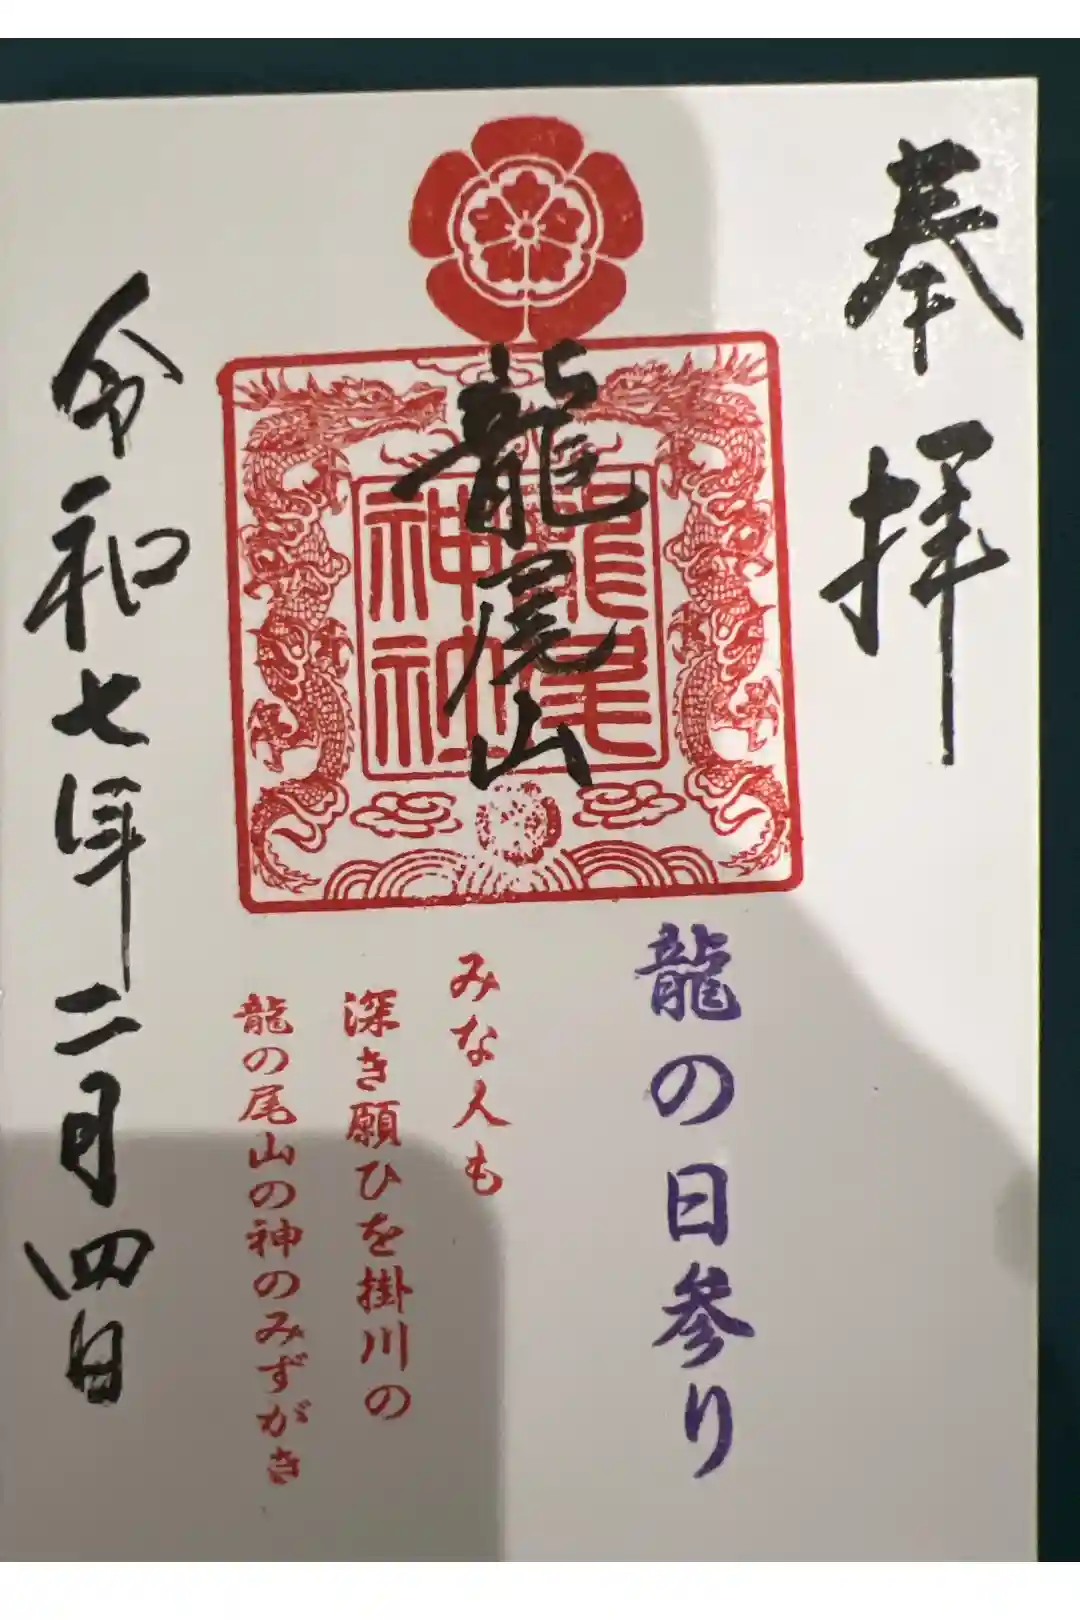 奉拝
龍尾山
龍尾
神社
龍の日参り
みな人も
深き願ひを掛川の
龍の尾山の神のみずがき
令和七年二月四日